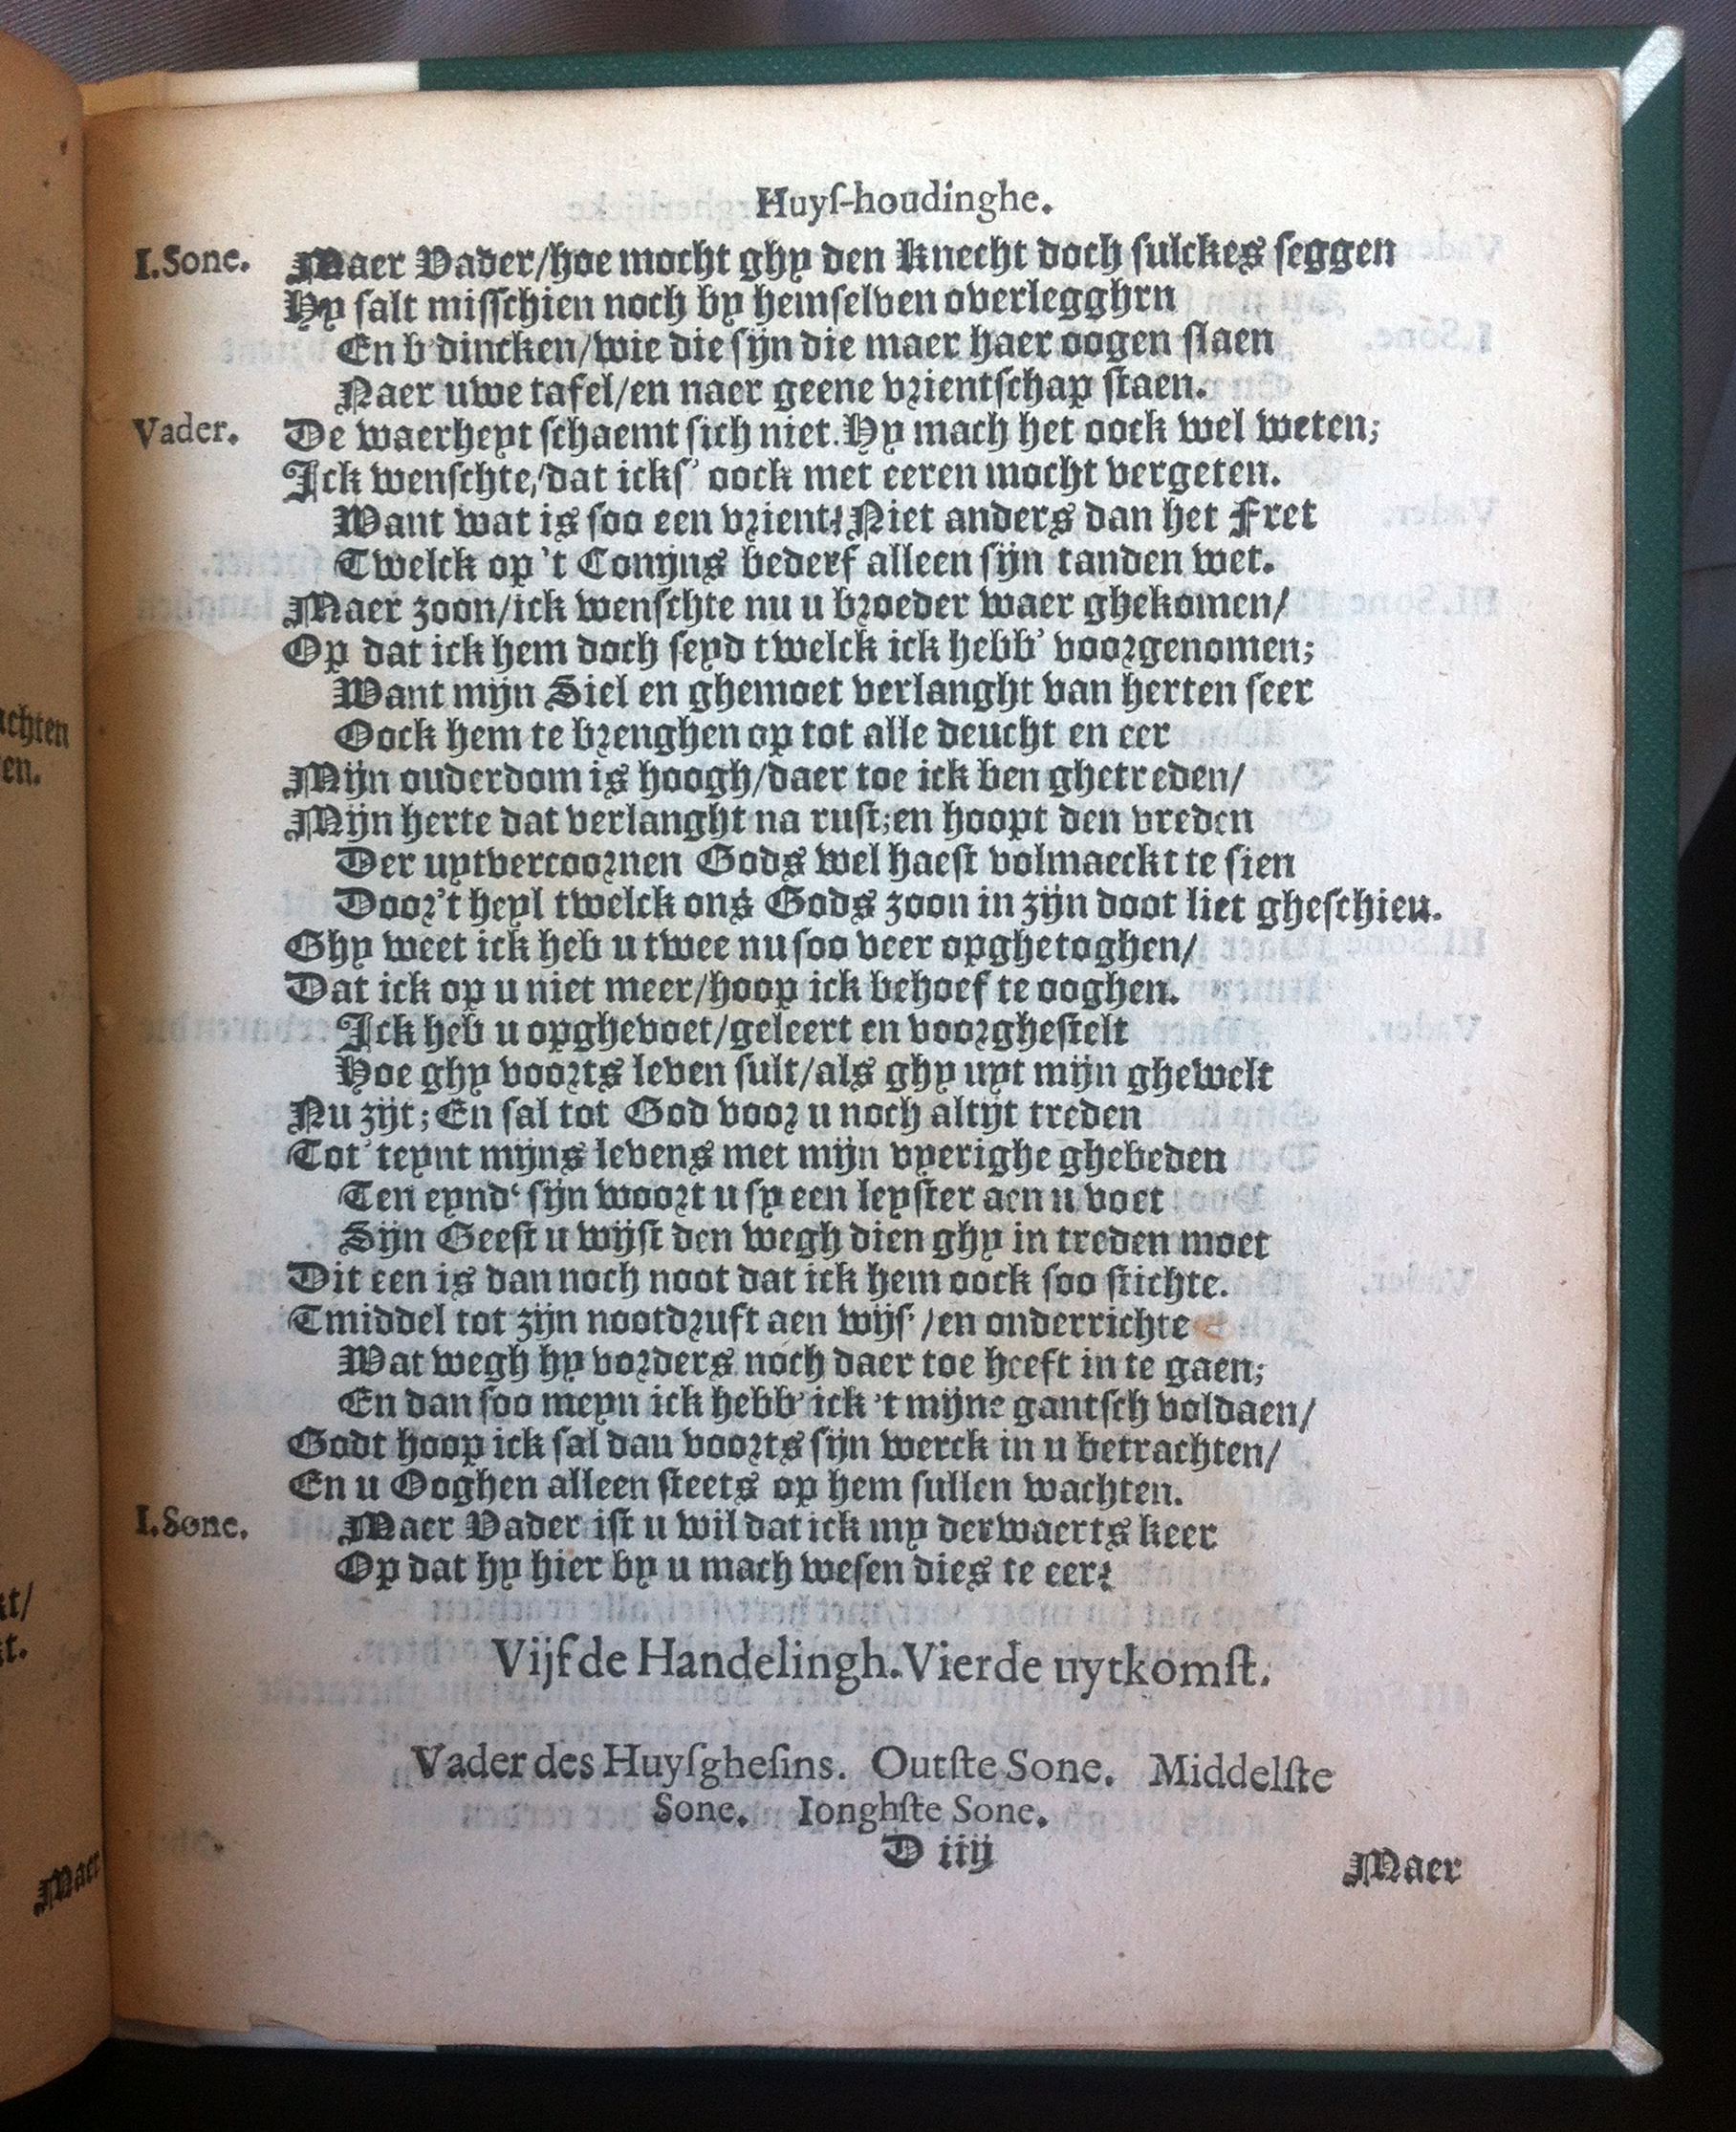 Huyſ-houdinghe.
I.Sone. Maer Vader/hoe mocht ghy den Knecht doch ſulckes ſeggen
Hy ſalt miſſchien noch by hemſelven overlegghrn
En b'dincken/wie die ſijn die maer haer oogen ſlaen
Naer uwe tafel/en naer geene vrientſchap ſtaen.
Vader. De waerheyt ſchaemt ſich niet. Hy mach het oock wel weten;
Ick wenſchte/dat ickſ' oock met eeren mocht vergeten.
Want wat is ſoo een vrient? Niet anders dan het Fret
Twelck op 't Conijns bederf alleen ſijn tanden wet.
Maer zoon/ick wenſchte nu u broeder waer ghekomen/
Op dat ick hem doch ſeyd twelck ick hebb' voorgenomen;
Want mijn Siel en ghemoet verlanght van herten ſeer
Oock hem te brenghen op tot alle deucht en eer
Mijn ouderdom is hoogh/daer toe ick ben ghetreden/
Mijn herte dat verlanght na ruſt;en hoopt den vreden
Der uytvercoornen Gods wel haeſt volmaeckt te ſien
Door't heyl twelck ons Gods zoon in zijn doot liet gheſchieu.
Ghy weet ick heb u twee nu ſoo veer opghetoghen/
Dat ick op u niet meer/hoop ick behoef te ooghen.
Ick heb u opghevoet/geleert en voorgheſtelt
Hoe ghy voorts leven ſult/als ghy uyt mijn ghewelt
Nu zijt; En ſal tot God voor u noch altijt treden
Tot' teynt mijns levens met mijn vyerighe ghebeden
Ten eynd' ſijn woort u ſy een leyſter aen u voet
Sijn Geeſt u wijſt den wegh dien ghy in treden moet
Dit een is dan noch noot dat ick hem oock ſoo ſtichte.
Tmiddel tot zijn nootdruft aen wijſ' /en onderrichte
Wat wegh hy vorders noch daer toe heeft in te gaen;
En dan ſoo meyn ick hebb' ick 't mijne gantſch voldaen/
Godt hoop ick ſal dau voorts ſijn werck in u betrachten/
En u Ooghen alleen ſteets op hem ſullen wachten.
I.Sone. Maer Vader iſt u wil dat ick my derwaerts keer
Op dat hy hier by u mach weſen dies te eer?
Vijfde Handelingh. Vierde uytkomſt.
Vader des Huyſgheſins. Outſte Sone. Middelſte
Sone. Ionghſte Sone.
D iiij
Maer
achten
en.
kt/
kt.
Maer